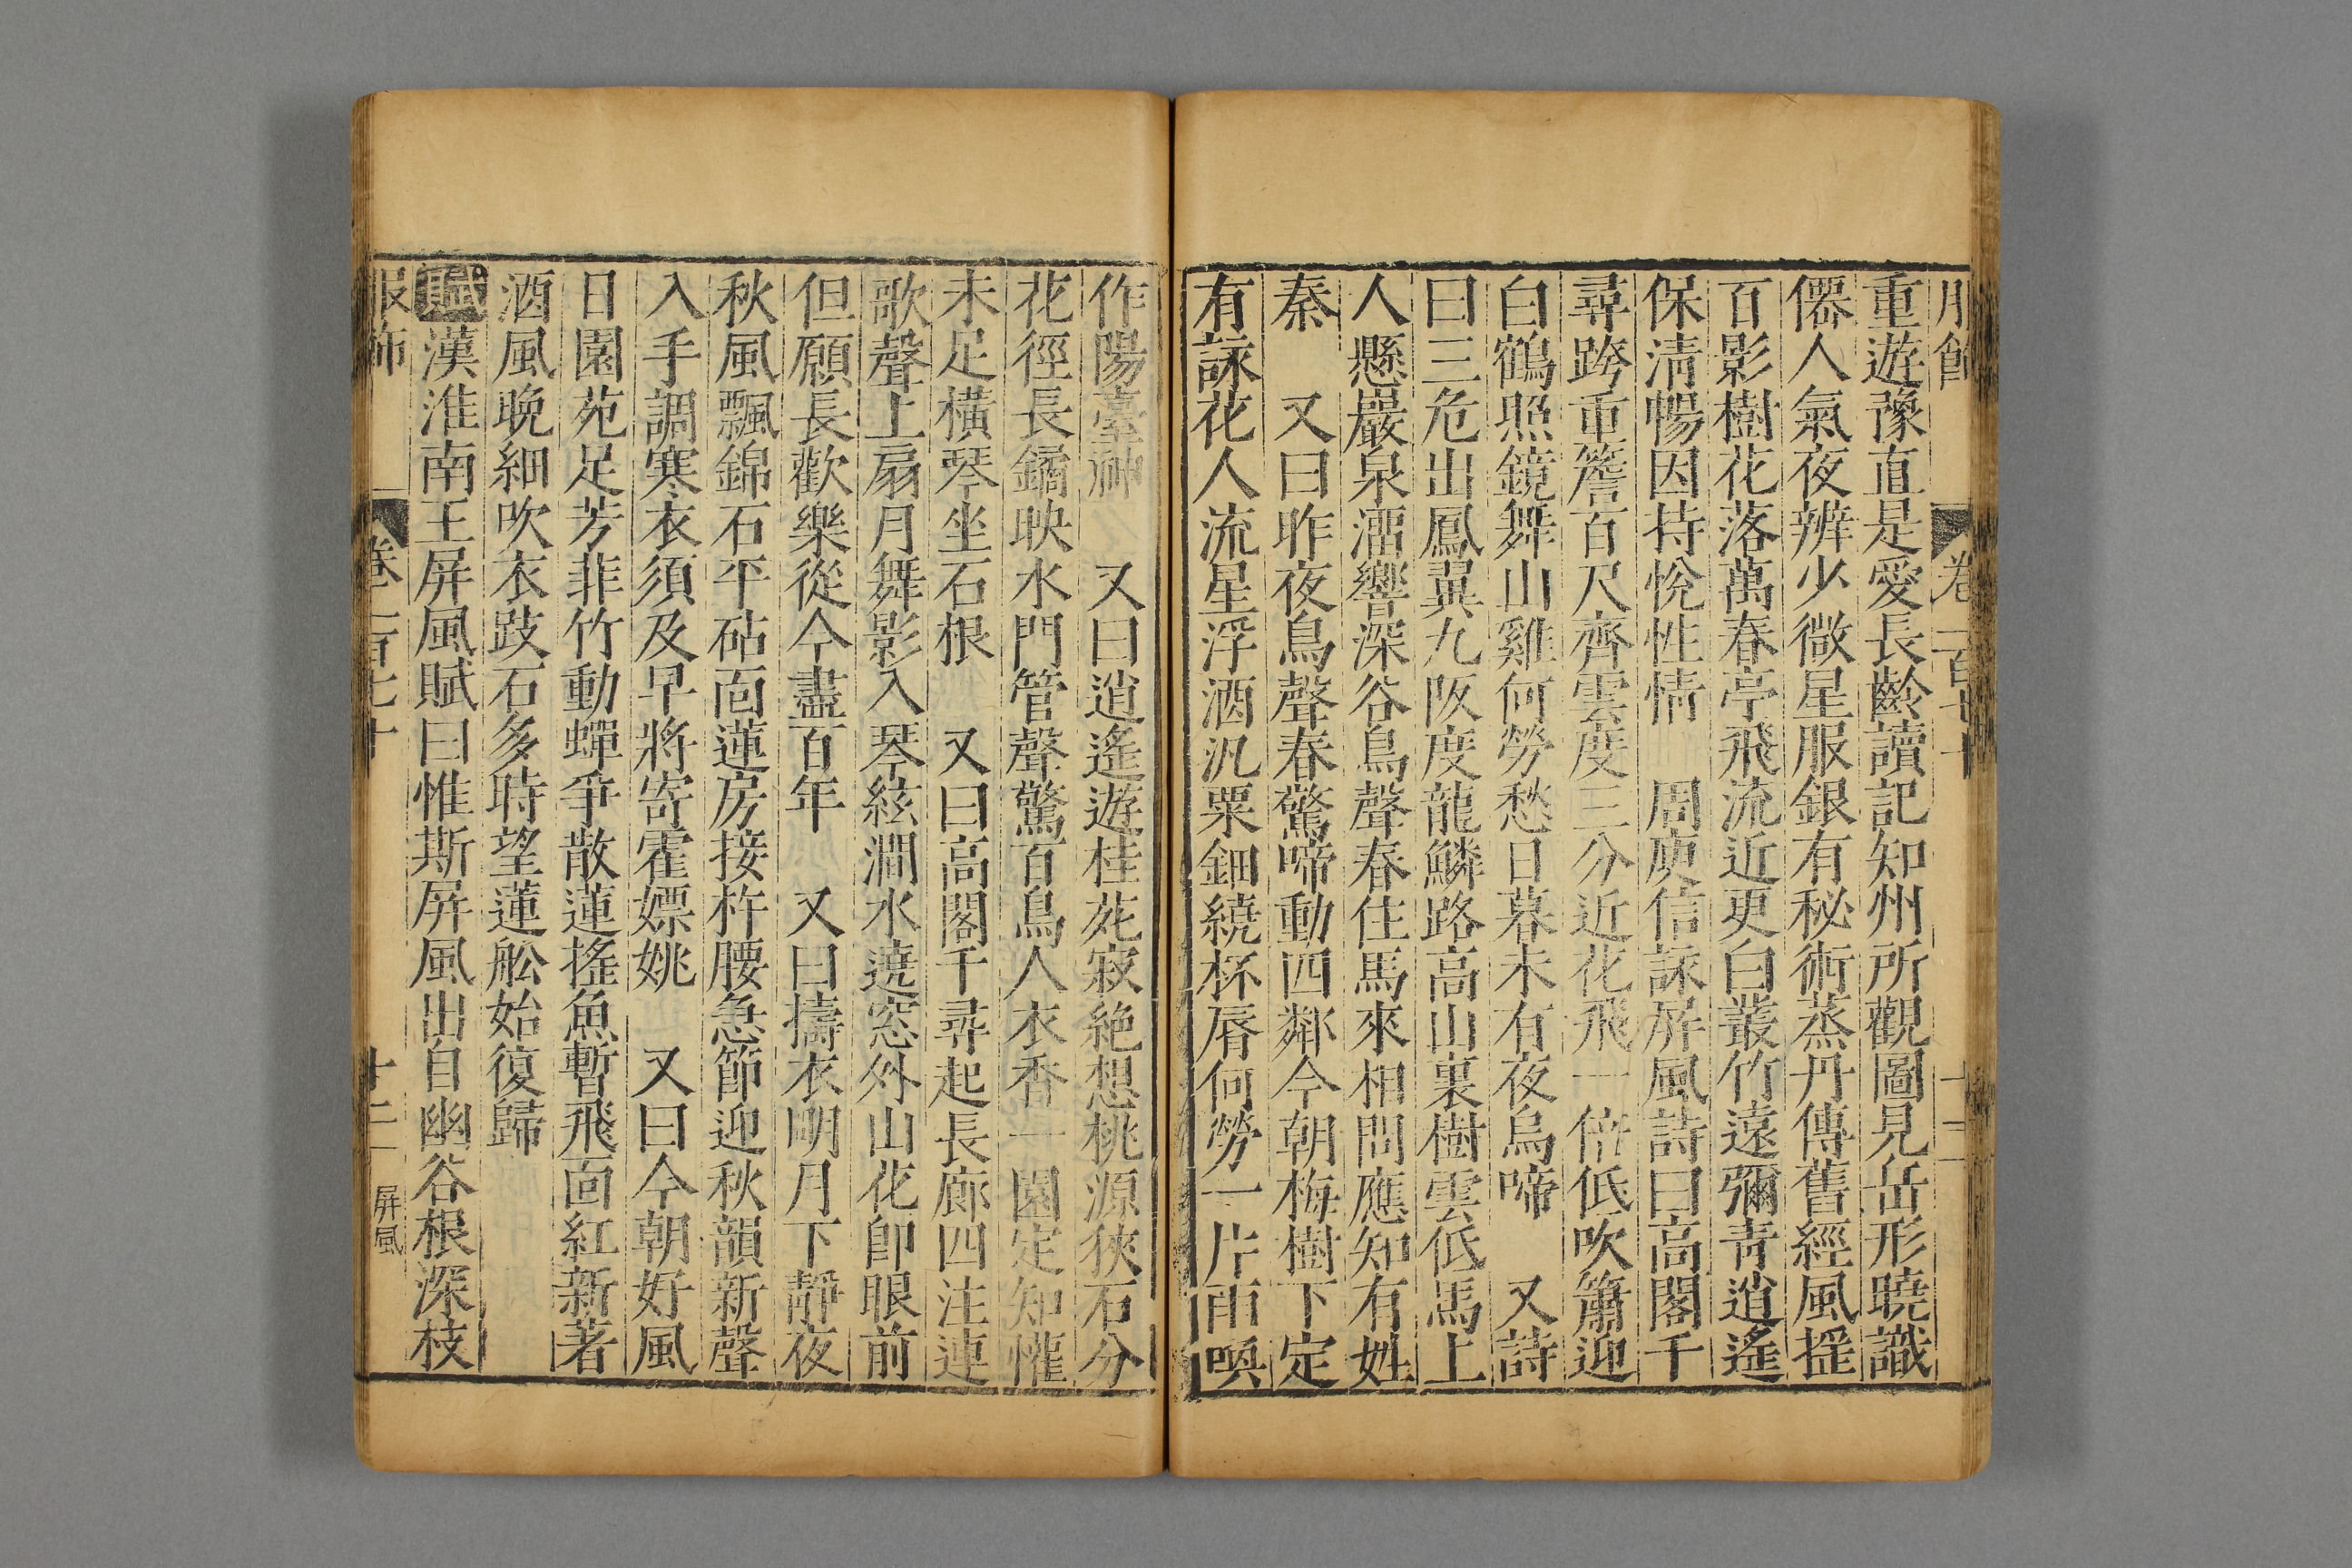 服飾 卷一百七十 十二
重遊豫直是愛長齡讀記知州所觀圖見岳形曉識
僊人氣夜辨少微星服銀有秘術蒸丹傳舊經風搖
百影樹花落萬春亭飛流近更白叢竹遠彌靑逍遙
保淸暢因持悅性情 周庾信詠屏風詩曰高閣千
尋跨重簷百尺齊雲度三分近花飛一倍低吹簫迎
白鶴照鏡舞山雞何勞愁日暮未有夜烏啼 又詩
曰三危出鳳翼九阪度龍鱗路高山裏樹雲低馬上
人懸巖泉溜響深谷鳥聲春住馬來相問應知有姓
秦 又曰昨夜鳥聲春驚啼動四鄰今朝梅樹下定
有詠花人流星浮酒汎粟鈿繞杯脣何勞一片雨喚
作陽臺神 又曰逍遙遊桂苑寂絶想桃源狹石分
花徑長鐍映水門管聲驚百鳥人衣香一園定知懽
未足橫琴坐石根 又曰高閣千尋起長廊四注連
歌聲上扇月舞影入琴絃澗水遶窓外山花卽眼前
但願長歡樂從今盡百年 又曰擣衣明月下靜夜
秋風飄錦石平砧面蓮房接杵腰急節迎秋韻新聲
入手調寒衣須及早將寄霍嫖姚 又曰今朝好風
日園苑足芳菲竹動蟬爭散蓮搖魚暫飛面紅新著
酒風晚細吹衣跂石多時望蓮舩始復歸
賦漢淮南王屏風賦曰惟斯屏風出自幽谷根深枝
服飾 卷一百七十 十二 屏風